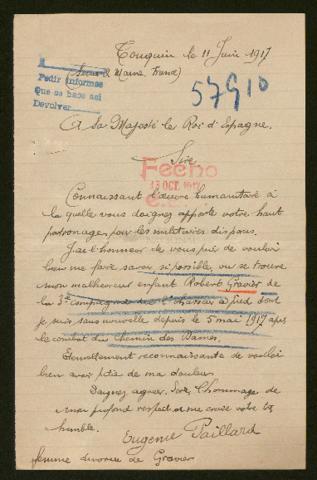 Touquin le 11 Juin 1917
(Seine & Marne, France)
Pedir informes
Que se hace así
Devolver
57910
A Sa Majesté le Roi d'Espagne.
Sire,
Fecho
13 OCT. 1917
Connaissant l'œuvre humanitaire à
la quelle vous daignez apporter votre haut
patronage, pour les militaires disparus.
J'ai l'honneur de vous prier de vouloir
bien me faire savoir si possible, ou se trouve
mon malheureux enfant Robert Gravier de
la 3e compagnie du chasseur à pied dont
je suis sans nouvelle depuis le 5 mai 1917 après
le combat du chemin des Dames.
reconnaissante de vouloir
bien avoir pitié de ma douleur
Daignez agréer, Sire, l'hommage de
mon profond respect et me croire votre très
humble.
Eugenie Paillard
femme divorcée de Gravier